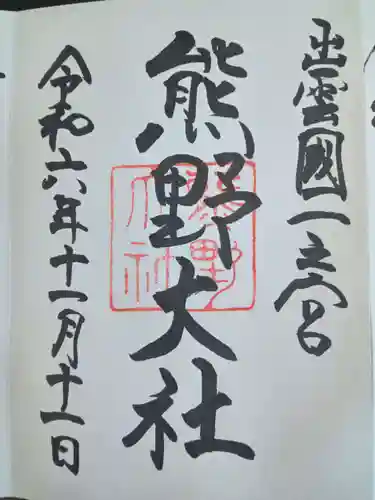 出雲國一之宮
熊野大社
熊野大社
令和六年十一月十一日